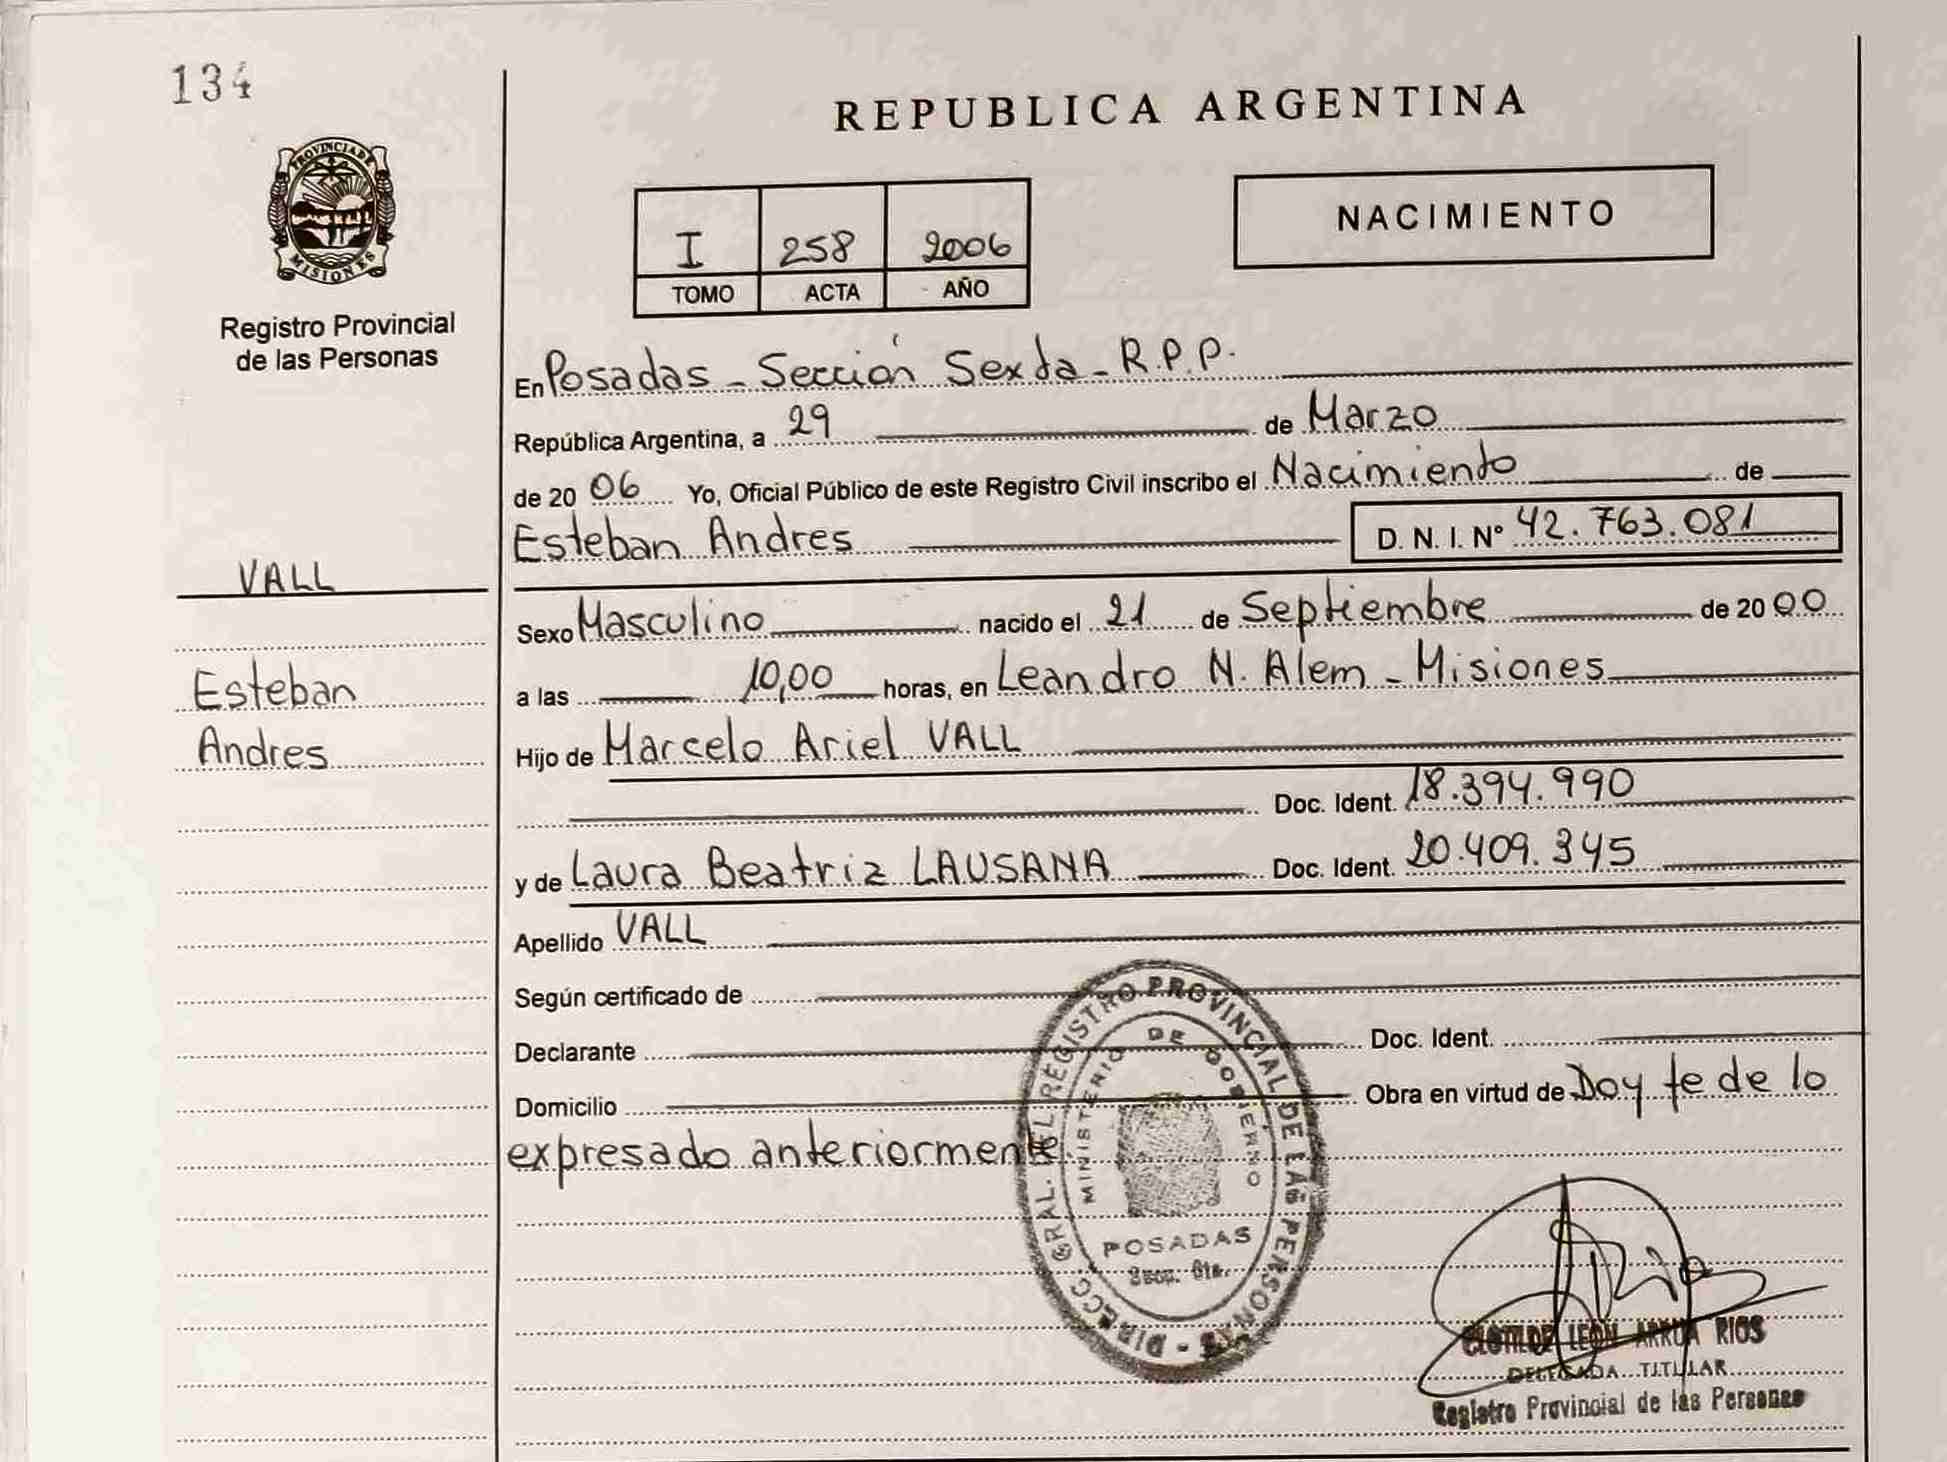 134
PROVINCIA DE
MISIONES
Registro Provincial
de las Personas
REPUBLICA ARGENTINA
I 258 2006
TOMO ACTA AÑO
NACIMIENTO
En Posadas - Sección Sexta - R.P.P.
República Argentina, a 29 de Marzo
de 20 06 Yo, Oficial Público de este Registro Civil inscribo el Nacimiento de
Esteban Andres D. N. I. N° 42.763.081
VALL
Esteban
Andres
Sexo Masculino nacido el 21 de Septiembre de 20 00
a las 10,00 horas, en Leandro N. Alem - Misiones
Hijo de Marcelo Ariel VALL
Doc. Ident. 18.394.990
y de Laura Beatriz LAUSANA Doc. Ident. 20.409.345
Apellido VALL
Según certificado de
Declarante Doc. Ident.
Domicilio Obra en virtud de Doy fe de lo
expresado anteriormente.
DIRECC. GRAL. DEL REGISTRO PROVINCIAL DE LAS PERSONAS
MINISTERIO DE GOBIERNO
POSADAS
CLOTILDE LEON ARRUA RIOS
DELEGADA TITULAR
Registro Provincial de las Personas